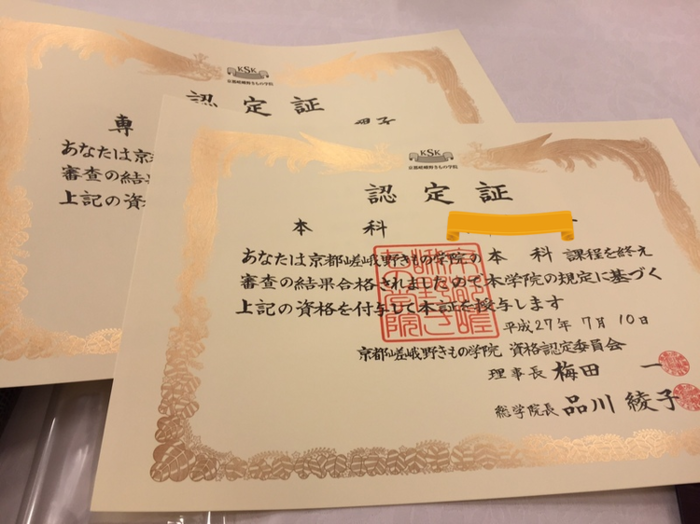 KSK
京都嵯峨野きもの学院
認定証
専
あなたは京
審査の結果
上記の資
KSK
京都嵯峨野きもの学院
認定証
本科
あなたは京都嵯峨野きもの学院の本科課程を終え
審査の結果合格されましたので本学院の規定に基づく
上記の資格を付与して本証を授与します
平成27年7月10日
京都嵯峨野きもの学院 資格認定委員会
理事長 梅田 一
総学院長 品川 綾子